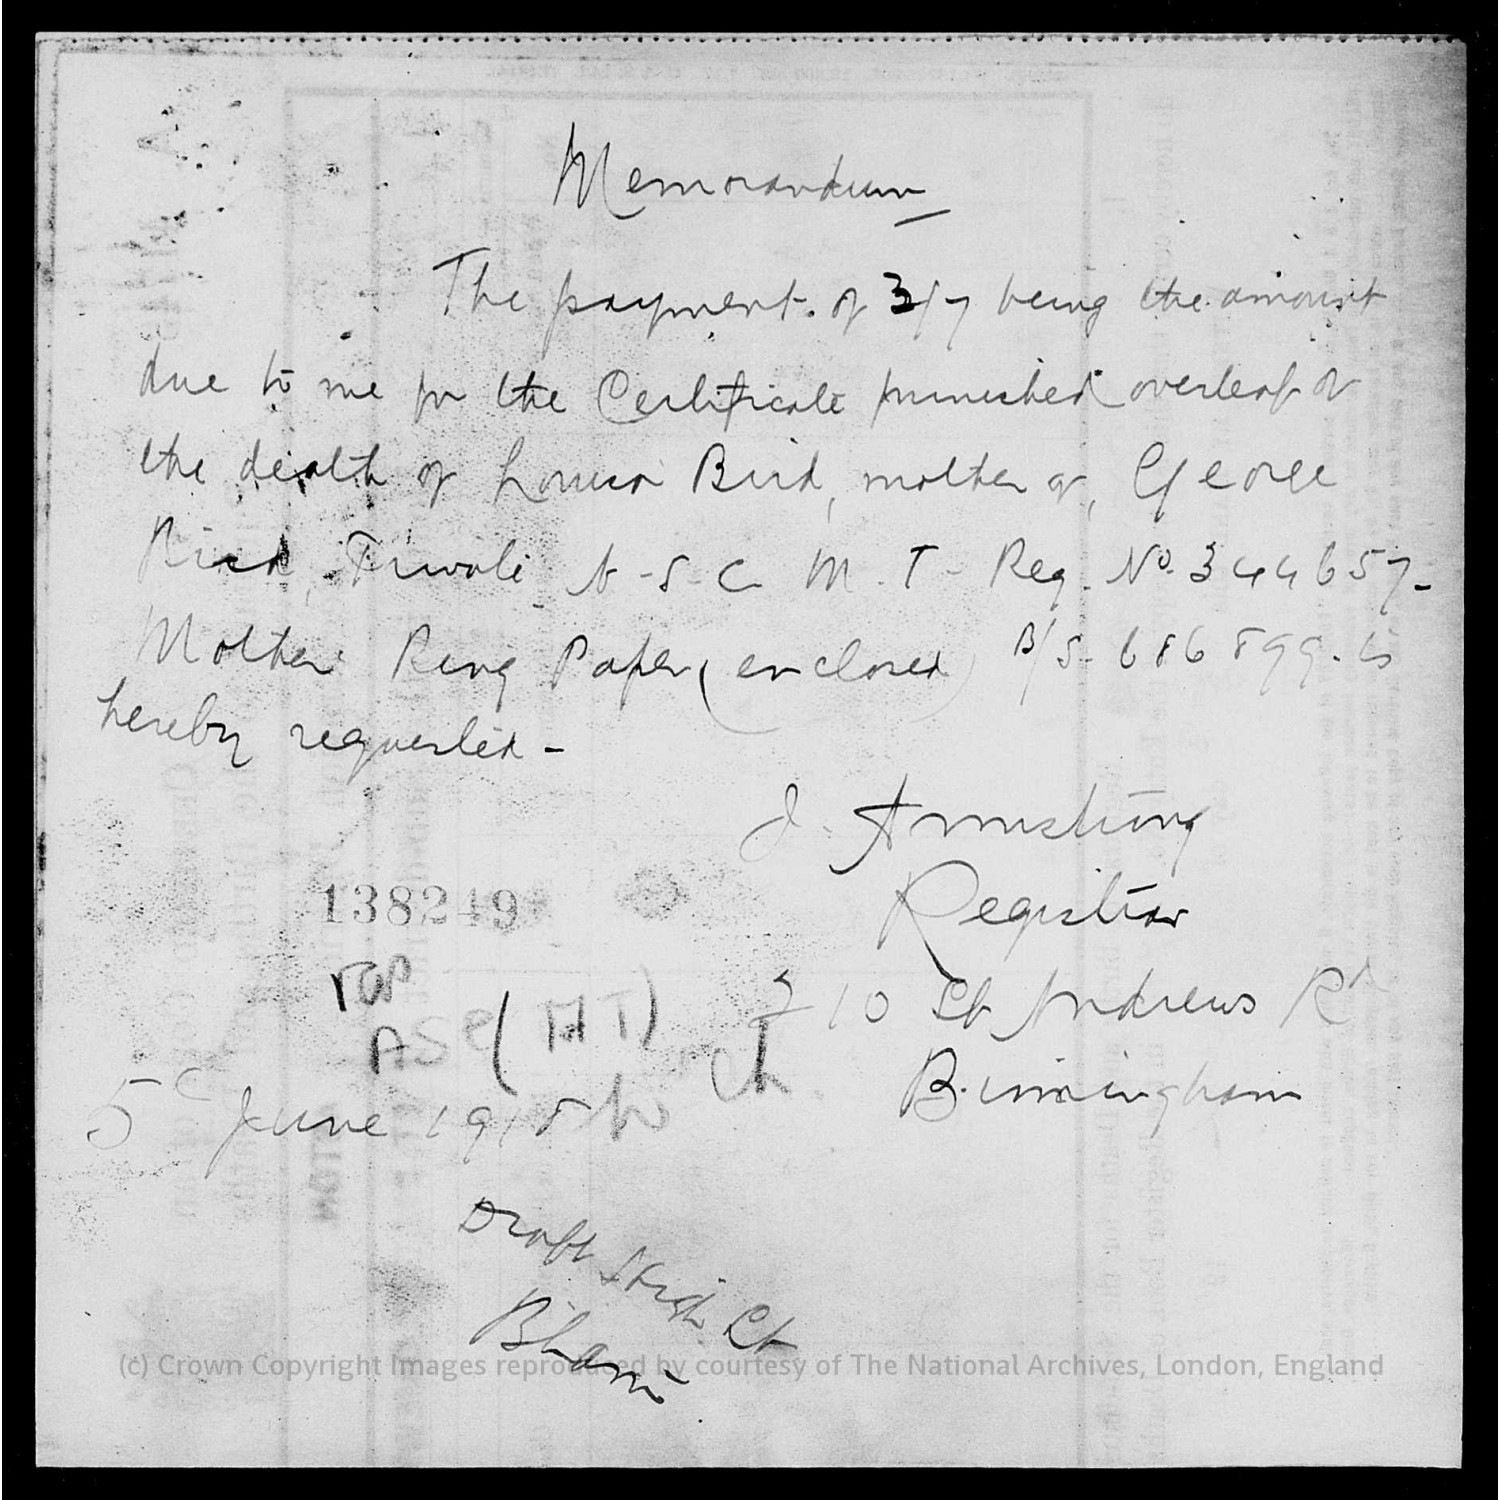 Memorandum
The payment of 3/7 being the amount
due to me for the Certificate furnished overleaf of
the death of Louisa Bird, mother of, George
Bird, Private A-S-C M.T- Reg. No. 344657-
Mother Ring Paper (enclosed) B/S. 686899. is
hereby requested -
J. Armstrong
Registrar
138249
210 St Andrews Rd
ASC (MT)
Birmingham
5 June 1918
Draft St
Bham
(c) Crown Copyright Images reproduced by courtesy of The National Archives, London, England